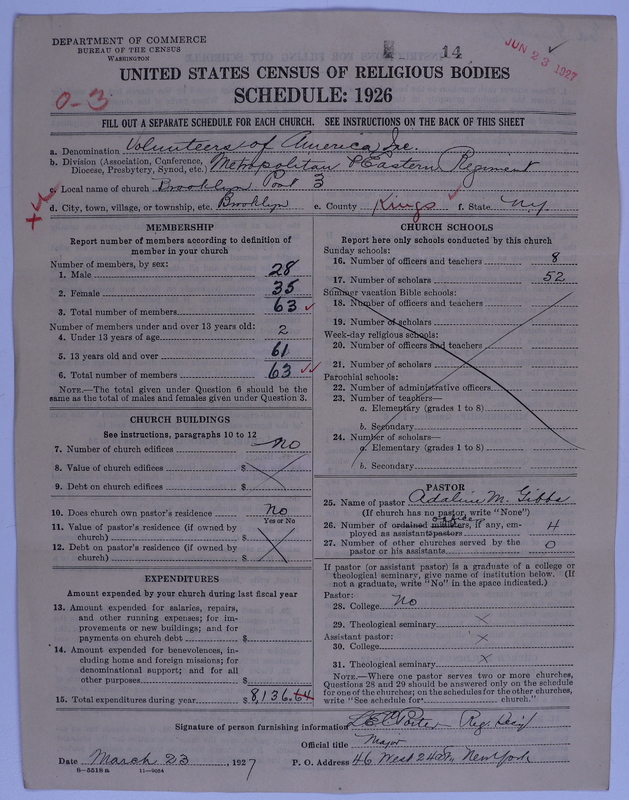 DEPARTMENT OF COMMERCE
BUREAU OF THE CENSUS
WASHINGTON
14
JUN 23 1927
UNITED STATES CENSUS OF RELIGIOUS BODIES
SCHEDULE: 1926
0-3
FILL OUT A SEPARATE SCHEDULE FOR EACH CHURCH. SEE INSTRUCTIONS ON THE BACK OF THIS SHEET
a. Denomination Volunteers of America Inc.
b. Division (Association, Conference, Diocese, Presbytery, Synod, etc.) Metropolitan & Eastern Regiment
c. Local name of church Brooklyn Post 3
d. City, town, village, or township, etc. Brooklyn e. County Kings f. State NY
MEMBERSHIP
Report number of members according to definition of
member in your church
Number of members, by sex:
1. Male 28
2. Female 35
3. Total number of members 63
Number of members under and over 13 years old:
4. Under 13 years of age 2
5. 13 years old and over 61
6. Total number of members 63
NOTE.—The total given under Question 6 should be the
same as the total of males and females given under Question 3.
CHURCH BUILDINGS
See instructions, paragraphs 10 to 12
7. Number of church edifices no
8. Value of church edifices $
9. Debt on church edifices $
10. Does church own pastor's residence no
Yes or No
11. Value of pastor's residence (if owned by
church) $
12. Debt on pastor's residence (if owned by
church) $
EXPENDITURES
Amount expended by your church during last fiscal year
13. Amount expended for salaries, repairs,
and other running expenses; for im-
provements or new buildings; and for
payments on church debt $
14. Amount expended for benevolences, in-
cluding home and foreign missions; for
denominational support; and for all
other purposes $
15. Total expenditures during year $ 8,136.64
CHURCH SCHOOLS
Report here only schools conducted by this church
Sunday schools:
16. Number of officers and teachers 8
17. Number of scholars 52
Summer vacation Bible schools:
18. Number of officers and teachers
19. Number of scholars
Week-day religious schools:
20. Number of officers and teachers
21. Number of scholars
Parochial schools:
22. Number of administrative officers
23. Number of teachers—
a. Elementary (grades 1 to 8)
b. Secondary
24. Number of scholars—
a. Elementary (grades 1 to 8)
b. Secondary
PASTOR
25. Name of pastor Adaline M. Gibbs
(If church has no pastor, write "None")
26. Number of ordained ministers, if any, em-
ployed as assistant pastors 4
27. Number of other churches served by the
pastor or his assistants 0
If pastor (or assistant pastor) is a graduate of a college or
theological seminary, give name of institution below. (If
not a graduate, write "No" in the space indicated.)
Pastor:
28. College No
29. Theological seminary x
Assistant pastor:
30. College x
31. Theological seminary x
NOTE.—Where one pastor serves two or more churches,
Questions 28 and 29 should be answered only on the schedule
for one of the churches; on the schedules for the other churches,
write "See schedule for church."
Signature of person furnishing information
Official title Major
Date March 23, 1927 P. O. Address 46 West 24 St, New York
8-5518a 11-9054